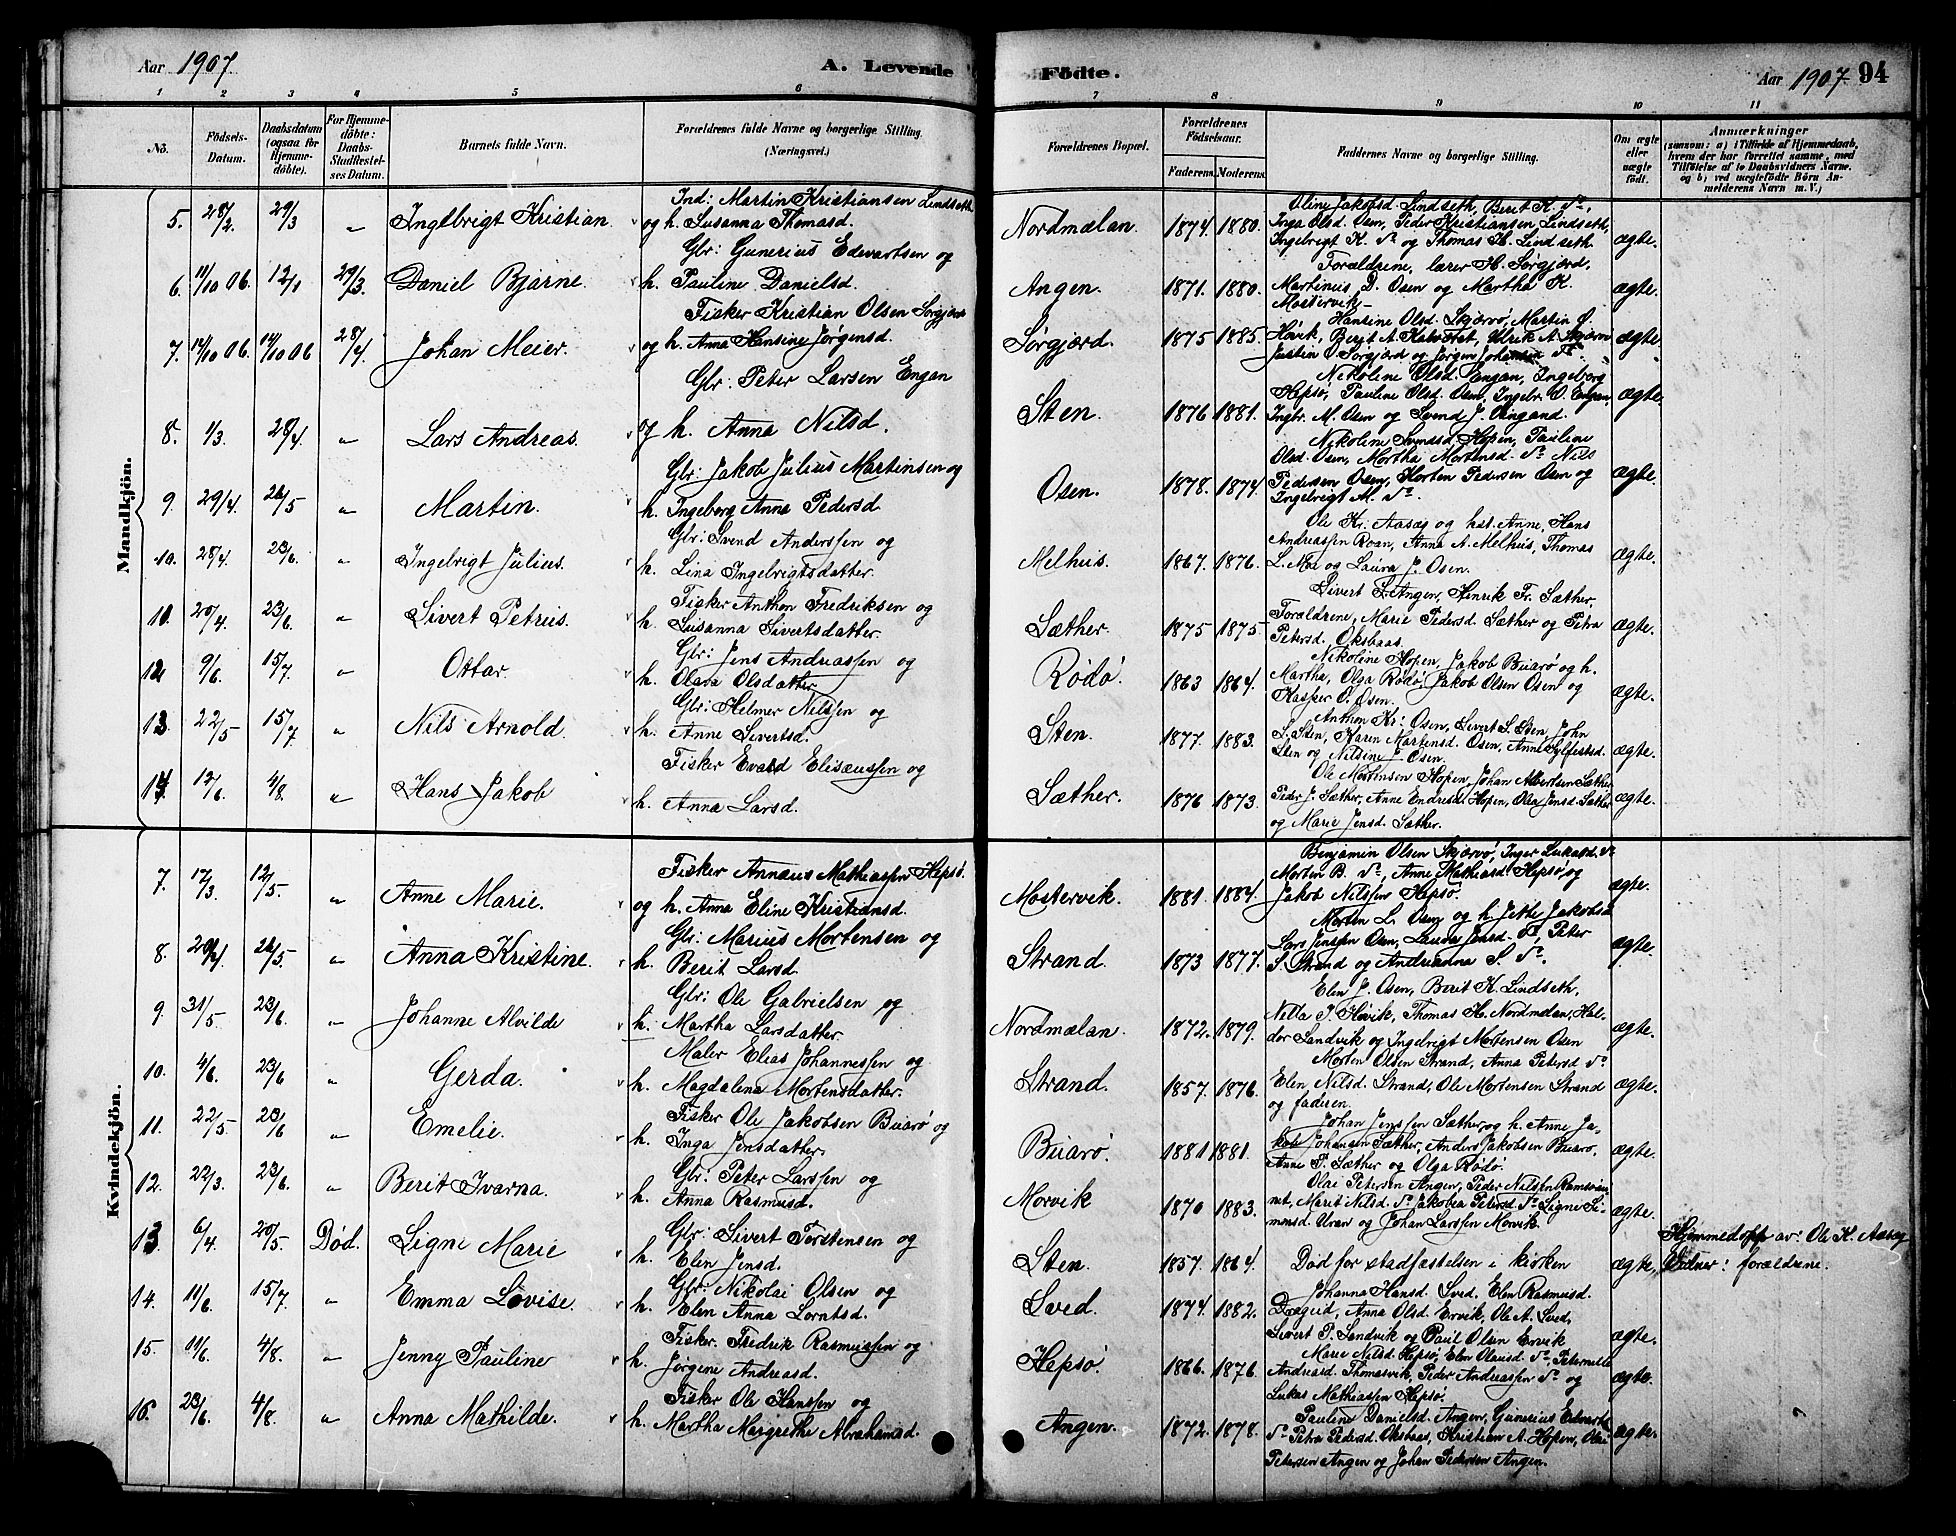 Aar 1907.
A. Levende
Födte.
Aar 1907 94
1 2 3 4 5 6 7 8 9 10 11
No. Födsels-Datum. Daabsdatum (ogsaa for Hjemme-døbte). For Hjemme-döbte: Daabs-Stadfæstel-ses Datum. Barnets fulde Navn. Forældrenes fulde Navne og borgerlige Stilling. (Næringsvei.) Forældrenes Bopæl. Forældrenes Födselsaar. Faderens. Moderens. Faddernes Navne og borgerlige Stilling. Om ægte eller uægte født. Anmærkninger (saasom: a) i Tilfælde af Hjemmedaab, hvem der har forrettet samme, med Tilföielse af to Daabsvidners Navne, og b) ved uægtefödte Börn An-melderens Navn m. V.)
Mandkjön.
5. 28/2. 29/3 " Ingelbrigt Kristian Ind: Martin Kristiansen Lindseth og h. Susanna Thomasd. Nordmælan. 1874. 1880. Oline Jakobsd. Lindseth, Berit K. do, Inga Olsd. Osen, Peder Kristiansen Lindseth, Ingebrigt K. do og Thomas H. Lindseth. ægte.
6. 11/10 06. 12/1 29/3. Daniel Bjarne. Gbr: Gunerius Edevartsen og h. Pauline Danielsd. Angen. 1871. 1880. Forældrene, lærer H. Sørgjerd, Martinus D. Osen og Martha K. Mostervik. ægte.
7. 14/10 06. 14/10 06 28/4. Johan Meier. Fisker Kristian Olsen Sørgjerd og h. Anna Hansine Jørgensd. Sørgjerd. 1875 1885. Hansine Olsd. Skjærvö, Martin O. Høvik, Berit A. Kalvöset, Ulrik A. Skjærvö Justin O. Sörgjerd og Jørgen Johansen ægte
8. 1/3. 28/4 " Lars Andreas. Gbr: Peter Larsen Engan og h. Anna Nilsd. Sten. 1876 1881. Nikoline Olsd. Engan, Ingeborg Hepsö, Pauline Olsd. Osen, Ingebr. O. Engan, Ingbr. M. Osen og Svend J. Vingand. ægte.
9. 29/4. 26/5 " Martin. Gbr: Jakob Julius Martinsen og h. Ingeborg Anna Pedersd. Osen. 1878. 1874. Nikoline Svendsd. Hopen, Pauline Olsd. Osen, Martha Mortensd. do Nils Pedersen Osen, Morten Pedersen Osen og Ingelrigt M. do. ægte.
10. 28/4. 23/6. " Ingelrigt Julius. Gbr: Svend Anderssen og h. Lina Ingelrigtsdatter. Melhus. 1867. 1876. Ole Kr. Aasæg og hst. Anne, Hans Andreassen Roan, Anna A. Melhus, Thomas L. Moe og Laura J. Osen. ægte.
11. 20/4. 23/6. " Sivert Petrus. Fisker Anthon Fredriksen og h. Susanna Sivertsdatter. Sæther. 1875 1875 Sivert L. Angen, Henrik Fr. Sæther, Forældrene, Marie Pedersd. Sæther og Petra Petersd. Oksbaas. ægte.
12. 9/6. 15/7. " Ottar. Gbr: Jens Andreassen og h. Olava Olsdatter. Rödö. 1863 1864. Nikoline Hopen, Jakob Buarö og h. Martha, Olga Rödö, Jakob Olsen Osen og Kasper O. Osen. ægte.
13. 22/5. 15/7 " Nils Arnold. Gbr: Helmer Nilssen og h. Anne Sivertsd. Sten. 1877. 1883. Anthon Kr: Osen, Sivert S. Sten, John S. Sten, Karen Martensd. Osen, Anne Sylfestsd. Sten og Nilsine J. Osen. ægte.
14. 12/6. 4/8. " Hans Jakob Fisker Evald Elisæussen og h. Anna Larsd. Sæther. 1876 1873. Ole Mortensen Hopen, Johan Albertsen Sæther Peder J. Sæther, Anne Endresd. Hopen, Olea Jensd. Sæther og Marie Jensd. Sæther. ægte.
Kvindekjön.
7. 17/3. 12/5. " Anne Marie. Fisker Annæus Mathiassen Hepsö. og h. Anna Eline Kristiansd. Mostervik. 1881. 1884. Benjamin Olsen Skjærvö, Inger Lukasd. do Morten B. do, Anne Mathiasd. Hepsö og Jakob Nilssen Hepsö. ægte.
8. 26/5. " Anna Kristine. Gbr: Marius Mortensen og h. Berit Larsd. Strand. 1873 1877. Morten L. Osen og h. Jette Jakobsd Lars Jenssen Osen, Laura Jensd. do, Peter S. Strand og Andrianna S. do. ægte.
9. 31/5. 23/6. " Johanne Alvilde Gbr: Ole Gabrielsen og h. Martha Larsdatter. Nordmælan. 1872. 1879. Elen J. Osen, Berit K. Lindseth, Nella J. Hövik, Thomas H. Nordmelan, Hal-dor Sandvik og Ingelrigt Mortensen Osen ægte.
10. 4/6. 23/6 " Gerda. Maler Elias Johannessen og h. Magdalena Mortensdatter. Strand. 1857. 1876. Morten Olsen Strand, Anna Petersd do Elen Nilsd. Strand, Ole Mortensen Strand og faderen. ægte.
11. 22/5. 23/6 " Emelie. Fisker Ole Jakobsen Buarö og h. Inga Jensdatter. Buarö. 1881 1881. Johan Jenssen Sæther og h. Anne, Ja-kob Johansen Sæther, Anders Jakobsen Buarö, Anne P. Sæther og Olga Rödö. ægte.
12. 22/3. 23/6. " Berit Ivarna. Gbr: Peter Larssen og h. Anna Rasmusd. Morvik 1870 1883. Olai Petersen Angen, Peder Nilssen Ramsöi-net, Marit Nilsd. do Jakobea Petersd. do Signe Si-monsd. Uran og Johan Larssen Morvik. ægte.
13. 6/4. 20/5. Död. Signe Marie Gbr: Sivert Torstensen og h. Elen Jensd. Sten. 1857. 1864. Död for stadfæstelsen i kirken ægte. Hjemmedöpt av: Ole K. Aasæg Vidner: forældrene.
14. 11/6. 15/7 " Emma Lovise. Gbr: Nikolai Olsen og h. Elen Anna Lorntsd. Sved. 1874. 1882. Johanna Hansd. Sved. Elen Rasmusd. Drageid, Anna Olsd. Ervik, Ole A. Sved, Sivert P. Sandvik og Paul Olsen Ervik ægte.
15. 11/6. 4/8. " Jenny Pauline Fisker. Fredrik Rasmussen og h. Jørgine Andreasd. Hepsö. 1866. 1876. Marie Nilsd. Hepsö, Elen Olausd. do, Peternelle Andreasd. Thomasvik, Peder Andreassen do og Lukas Mathiassen Hepsö. ægte.
16. 23/6. 4/8. " Anna Mathilde. Fisker Ole Hanssen og h. Martha Margrethe Abrahamsd. Angen. 1872. 1878. Pauline Danielsd. Angen, Gunerius Edvarts. do Petra Pedersd. Oksbaas, Kristian A. Hopen, Olai Petersen Angen og Johan Pedersen Angen. ægte.